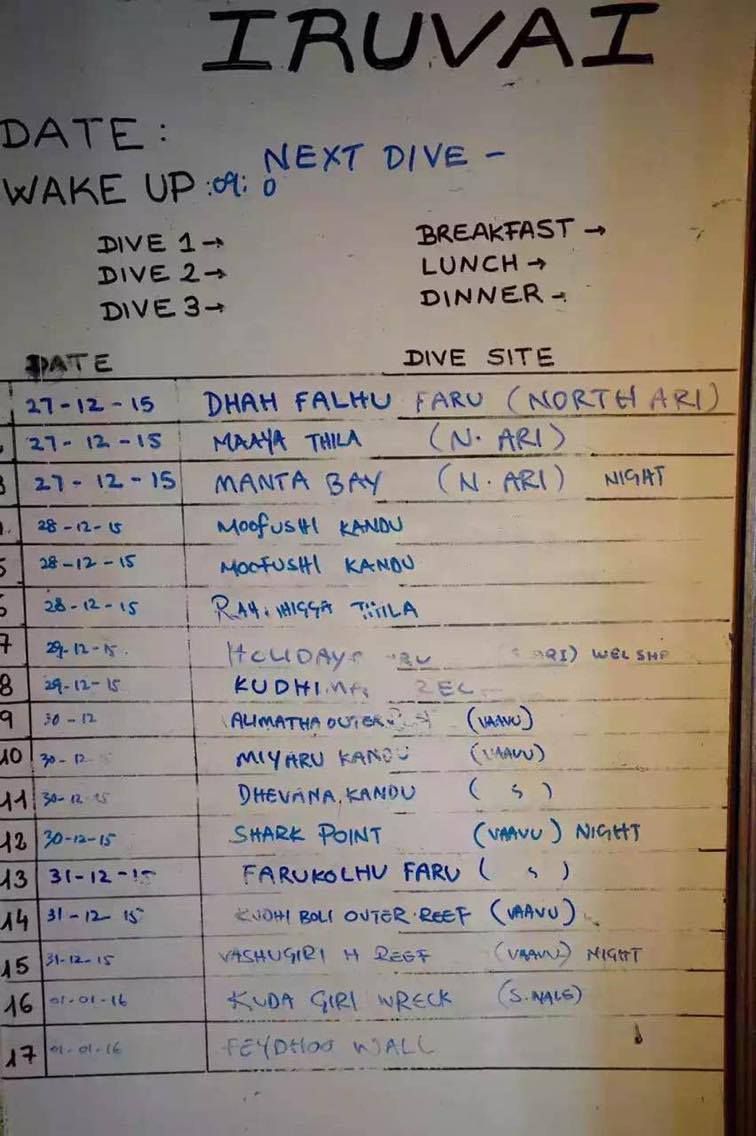 IRUVAI
DATE:
NEXT DIVE -
WAKE UP :09: 0
DIVE 1→ BREAKFAST →
DIVE 2→ LUNCH →
DIVE 3→ DINNER →
DATE DIVE SITE
27-12-15 DHAH FALHU FARU (NORTH ARI)
27-12-15 MAAYA THILA (N. ARI)
27-12-15 MANTA BAY (N. ARI) NIGHT
28-12-15 MOOFUSHI KANDU
5 28-12-15 MOOFUSHI KANDU
6 28-12-15 THILA
7 29-12-15. HOLIDAY ARI)
8 29-12-15
9 30-12 ALIMATHA OUTER (VAAVU)
10 30-12 MIYARU KANDU (VAAVU)
11 30-12-15 DHEVANA KANDU ( s )
12 30-12-15 SHARK POINT (VAAVU) NIGHT
13 31-12-15 FARUKOLHU FARU ( s )
14 31-12 15 KUDHI BOLI OUTER REEF (VAAVU)
15 31-12-15 VASHUGIRI H REEF (VAAVU) NIGHT
16 01-01-16 KUDA GIRI WRECK (S. MALE)
17 01-01-16 FEYDHOO WALL